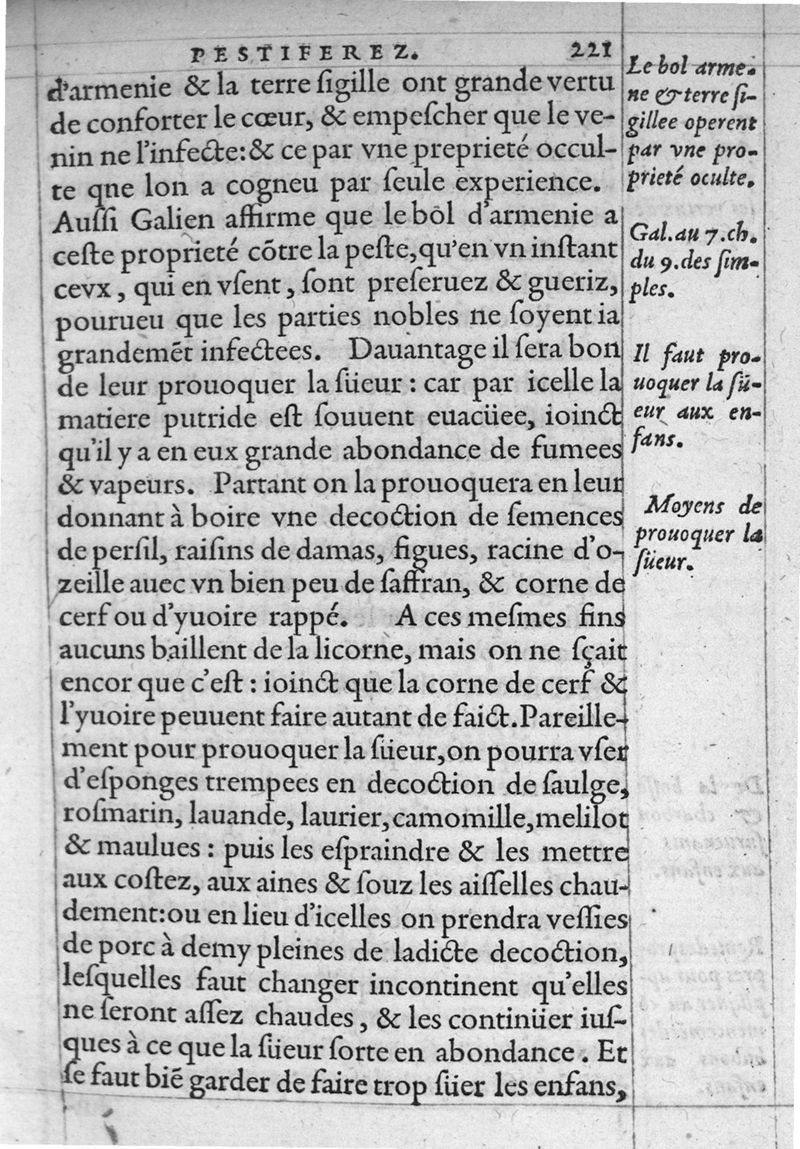 PESTIFEREZ. 221
d'armenie & la terre ſigille ont grande vertu
de conforter le cœur, & empeſcher que le ve-
nin ne l'infecte: & ce par vne preprieté occul-
te qne lon a cogneu par ſeule experience.
Auſſi Galien affirme que le bol d'armenie a
ceſte proprieté cõtre la peſte, qu'en vn inſtant
cevx, qui en vſent, ſont preſeruez & gueriz,
pourueu que les parties nobles ne ſoyent ia
grandemẽt infectees. Dauantage il ſera bon
de leur prouoquer la ſüeur : car par icelle la
matiere putride eſt ſouuent euacüee, ioinct
qu'il y a en eux grande abondance de fumees
& vapeurs. Partant on la prouoquera en leur
donnant à boire vne decoction de ſemences
de perſil, raiſins de damas, figues, racine d'o-
zeille auec vn bien peu de ſaffran, & corne de
cerf ou d'yuoire rappé. A ces meſmes fins
aucuns baillent de la licorne, mais on ne ſçait
encor que c'eſt : ioinct que la corne de cerf &
l'yuoire peuuent faire autant de faict. Pareille-
ment pour prouoquer la ſüeur, on pourra vſer
d'eſponges trempees en decoction de ſaulge,
roſmarin, lauande, laurier, camomille, melilot
& maulues : puis les eſpraindre & les mettre
aux coſtez, aux aines & ſouz les aiſſelles chau-
dement: ou en lieu d'icelles on prendra veſſies
de porc à demy pleines de ladicte decoction,
leſquelles faut changer incontinent qu'elles
ne ſeront aſſez chaudes, & les continüer iuſ-
ques à ce que la ſüeur ſorte en abondance. Et
ſe faut biẽ garder de faire trop ſüer les enfans,
Le bol arme-
ne & terre ſi-
gillee operent
par vne pro-
prieté oculte.
Gal. au 7. ch.
du 9. des ſim-
ples.
Il faut pro-
uoquer la ſü-
eur aux en-
fans.
Moyens de
prouoquer la
ſüeur.